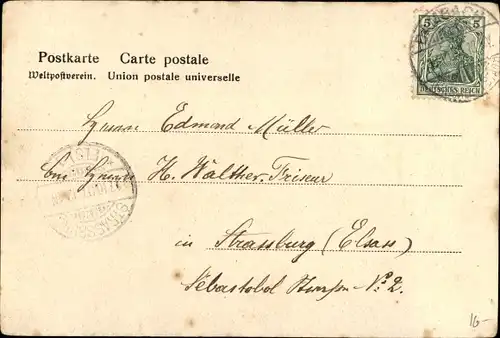 5 5
DEUTSCHES REICH
Postkarte Carte postale
Weltpostverein. Union postale universelle
Herrn Edmond Müller
bei Herrn H. Walther. Friseur
in Strassburg (Elsass)
Sebastobol No 2.
16-